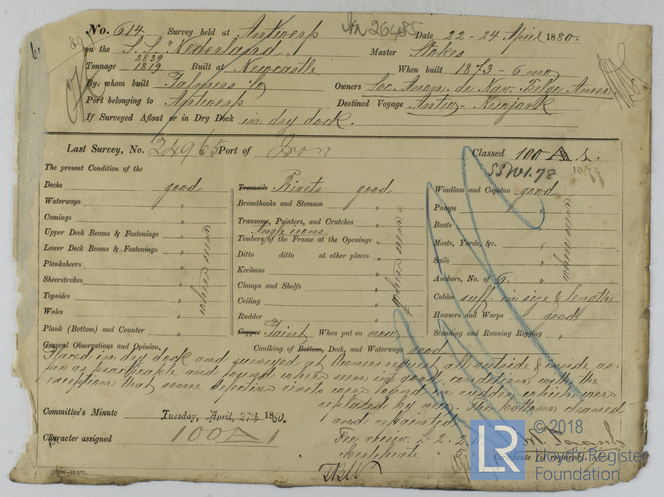 No. 614 Survey held at Antwerp Date 22-24 April 1880.
on the S.S. "Nederland" Master Stokes
Tonnage 2839 1819 Built at Newcastle When built 1873-6 mo
By whom built Palmers Co Owners Soc. Anon. de Nav. Belge Amer.
Port belonging to Antwerp Destined Voyage Antw-Newyork
If Surveyed Afloat or in Dry Dock in dry dock.
Last Survey, No. 24965 Port of Iron Classed 100 A 1.
SSNo1.78
The present Condition of the
Decks good
Waterways "
Comings "
Upper Deck Beams & Fastenings "
Lower Deck Beams & Fastenings "
Planksheers "
Sheerstrakes "
Topsides "
Wales "
Plank (Bottom) and Counter "
Treenails Rivets good
Breasthooks and Stemson "
Transoms, Pointers, and Crutches "
Angle irons
Timbers of the Frame at the Openings "
Ditto ditto at other places "
Keelsons "
Clamps and Shelfs "
Ceiling "
Rudder "
Copper Paint, When put on now
Caulking of Bottom, Deck, and Waterways good
where seen
Windlass and Capstan good
Pumps "
Boats "
Masts, Yards, &c. "
Sails "
Anchors, No. of 6. "
Cables suff. in size & length
Hawsers and Warps good
Standing and Running Rigging "
General Observations and Opinion,
Placed in dry dock and surveyed all outside & inside as
far as practicable and found where seen in good condition with the
exception that some defective rivets were found in rudder which were
replaced by new. The bottom cleaned
and repainted
Committee's Minute Tuesday, April, 27th 1880.
Character assigned 100A1
Fee
Certificate
(Certificate if required).
© 2018
Lloyd's Register
Foundation
LR